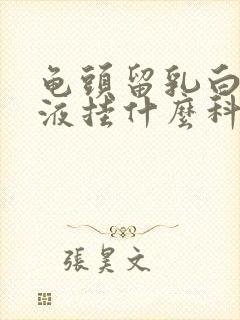 龟頭留乳白
液挂什麼科
張昊文